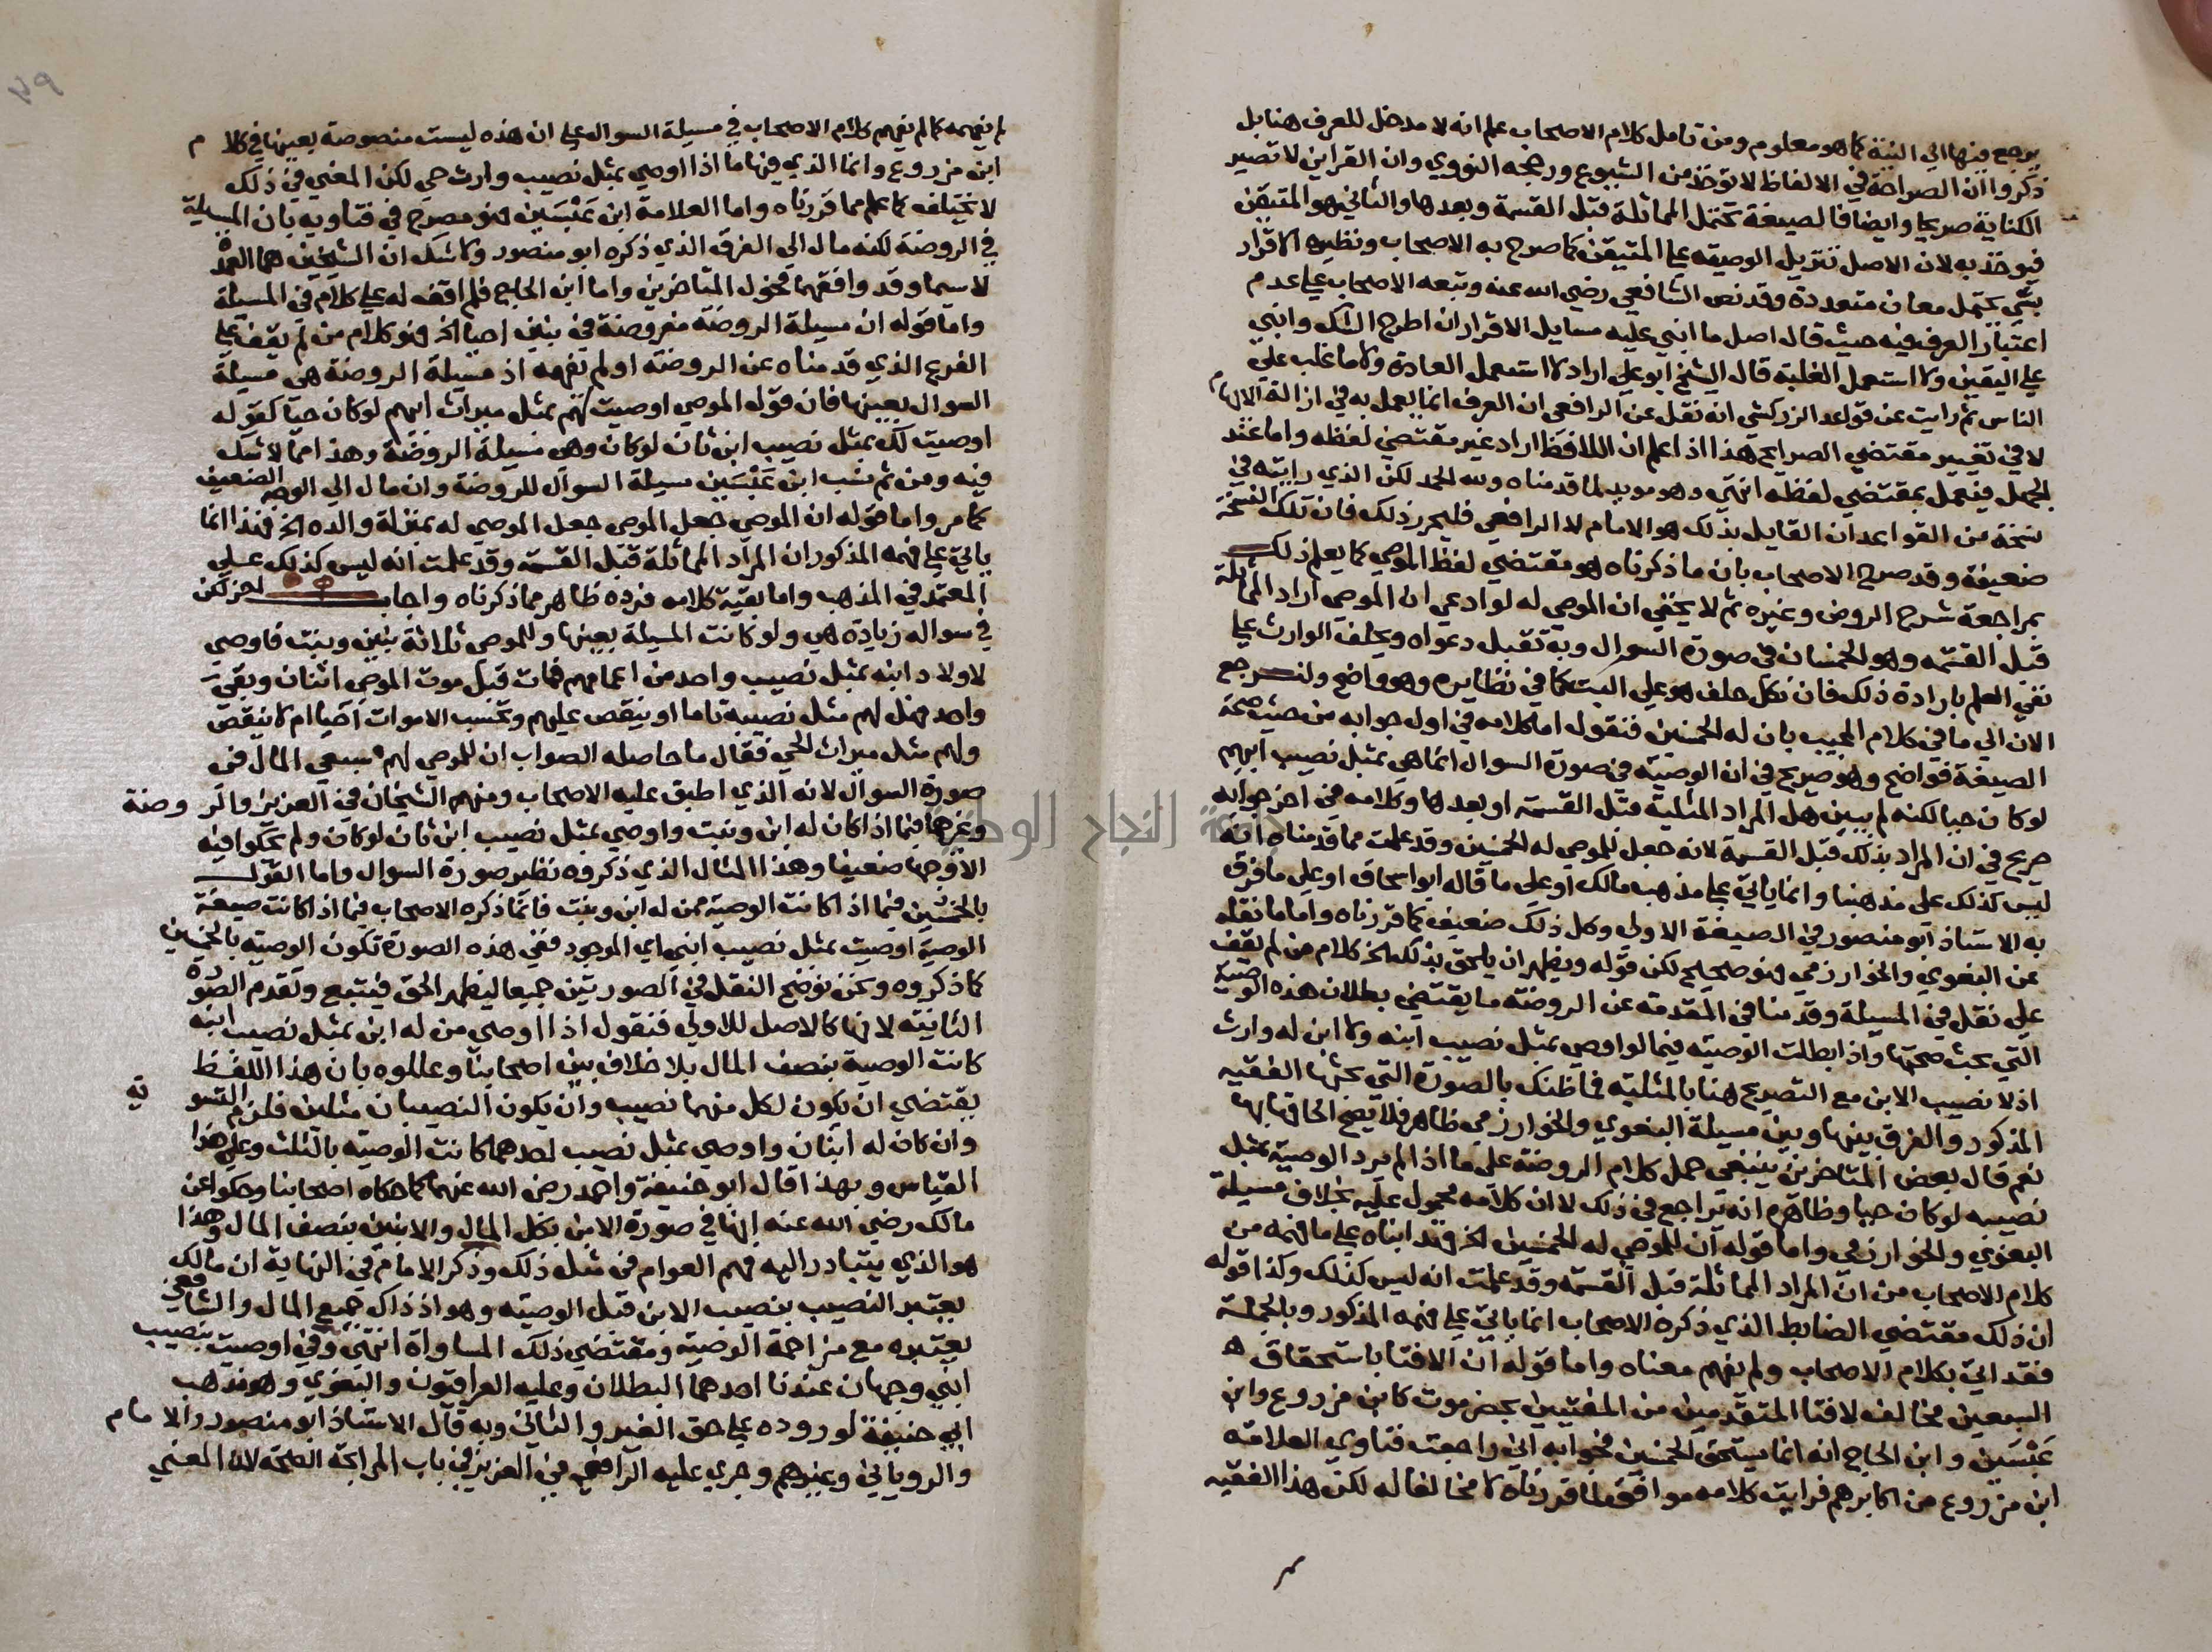 يرجع فيها الى النية كما هو معلوم ومن تامل كلام الاصحاب علم انه لا مدخل للعرف هنا بل
ذكروا ان الصراحة في الالفاظ لا توخذ من الشيوع ورجحه النووي وان القراين لا تصير
الكناية صريحا وايضا فالصيغة تحتمل المماثلة قبل القسمة وبعدها والثاني هو المتيقن
فيوخذ به لان الاصل تنزيل الوصية على المتيقن كما صرح به الاصحاب ونظيره الاقرار
بشي يحتمل معان متعددة وقد نص الشافعي رضي الله عنه وتبعه الاصحاب على عدم
اعتبار العرف فيه حيث قال اصل ما ابني عليه مسايل الاقرار ان اطرح الشك وابني
على اليقين ولا استعمل الغلبة قال الشيخ ابو علي اراد لا استعمل العادة ولا ما غلب على
الناس ثم رايت عن قواعد الزركشي انه نقل عن الرافعي ان العرف انما يعمل به في ازالة الابهام
لا في تغيير مقتضي الصرايح هذا اذا علم ان اللافظ اراد غير مقتضي لفظه واما عند
الجهل فيعمل بمقتضي لفظه انتهى وهو مويد لما قدمناه ولله الحمد لكن الذي رايته في
نسخة من القواعد ان القايل بذلك هو الامام لا الرافعي فليحرر ذلك فان تلك النسخة
ضعيفة وقد صرح الاصحاب بان ما ذكرناه هو مقتضي لفظ الموصي كما يعلم ذلك
بمراجعة شرح الروض وغيره ثم لا يخفي ان الموصي له لو ادعي ان الموصي اراد المماثلة
قبل القسمة وهو الخمسان في صورة السوال وبه تقبل دعواه ويحلف الوارث على
نفي العلم بارادة ذلك فان نكل حلف هو على البت كما في نظايره وهو واضح ولنرجع
الان الي ما في كلام المجيب بان له الخمسين فنقول اما كلامه في اول جوابه من حيث صحة
الصيغة فواضح وهو صريح في ان الوصية في صورة السوال انما هي بمثل نصيب ابيهم
لو كان حيا لكنه لم يبين هل المراد المثلية قبل القسمة او بعدها وكلامه في اخر جوابه
صريح في ان المراد بذلك قبل القسمة لانه جعل للموصي له الخمسين وقد علمت مما قدمناه انه
ليس كذلك على مذهبنا وانما ياتي على مذهب مالك او على ما قاله ابو اسحاق او على ما فرق
به الاستاذ ابو منصور في الصيغة الاولى وكل ذلك ضعيف كما قررناه واما ما نقله
عن البغوي والخوارزمي فهو صحيح لكن قوله ويظهر ان يلحق بذلك الخ كلام من لم يقف
على نقل في المسيلة وقد منا في المقدمة عن الروضة ما يقتضي بطلان هذه الوصية
التي بحث صحتها واذا بطلت الوصية فيما لو اوصي بمثل نصيب ابنه ولا ابن له وارث
اذ لا نصيب الابن مع التصريح هنا بالمثلية فما ظنك بالصورة التي بحثها الفقيه
المذكور والفرق بينها وبين مسيلة البغوي والخوارزمي ظاهر فلا يصح الحاقها بها
نعم قال بعض المتاخرين ينبغي حمل كلام الروضة على ما اذا لم يرد الوصية بمثل
نصيبه لو كان حيا وظاهره انه يراجع في ذلك لا ان كلامه محمول عليه بخلاف مسيلة
البغوي والخوارزمي واما قوله ان للموصي له الخمسين الخ فقد ابناه على ما فهمه من
كلام الاصحاب من ان المراد المماثلة قبل القسمة وقد علمت انه ليس كذلك وكذا قوله
ان ذلك مقتضي الضابط الذي ذكره الاصحاب انما ياتي على فهمه المذكور وبالجملة
فقد اتى بكلام الاصحاب ولم يفهم معناه واما قوله ان الافتا باستحقاق
السبعين مخالف لافتا المتقدمين من المفتيين بحضرموت كابن مزروع وابن
عبسين وابن الحاج انه انما يستحق الخمسين فجوابه اني راجعت فتاوي العلامة
ابن مزروع من اكابرهم فرايت كلامه موافق لما قررناه لا مخالفا له لكن هذا الفقيه
لم يفهمه كما لم يفهم كلام الاصحاب في مسيلة السوال على ان هذه ليست منصوصة بعينها في كلام
ابن مزروع وانما الذي فيها ما اذا اوصي بمثل نصيب وارث حي لكن المعني في ذلك
لا يختلف كما علم مما قررناه واما العلامة ابن عبسين فهو مصرح في فتاويه بان المسيلة
في الروضة لكنه مال الى الفرق الذي ذكره ابو منصور ولا شك ان الشيخين هما العمدة
لا سيما وقد وافقهما فحول المتاخرين واما ابن الحاج فلم اقف له على كلام في المسيلة
واما قوله ان مسيلة الروضة مفروضة في بنين احيا الخ فهو كلام من لم يقف على
الفرع الذي قدمناه عن الروضة او لم يفهمه اذ مسيلة الروضة هي مسيلة
السوال بعينها فان قوله الموصي اوصيت لهم بمثل ميراث ابيهم لو كان حيا كقوله
اوصيت لك بمثل نصيب ابن ثان لو كان وهي مسيلة الروضة وهذا مما لا شك
فيه ومن ثم نسب ابن عبسين مسيلة السوال للروضة وان مال الى الوجه الضعيف
كما مر واما قوله ان الموصي جعل الموصي جعل الموصي له بمنزلة والده الخ فهذا انما
ياتي على فهمه المذكور ان المراد المماثلة قبل القسمة وقد علمت انه ليس كذلك على
المعتمد في المذهب واما بقية كلامه فرده ظاهر مما ذكرناه واجاب اخر لكن
في سواله زيادة هي ولو كانت المسيلة بعينها وللموصي ثلاثة بنين وبنت فاوصي
لاولاد ابنه بمثل نصيب واحد من اعمامهم فمات قبل موت الموصي اثنان وبقي
واحد فهل لهم مثل نصيبه تاما او ينقص عليهم وتحسب الاموات احيا ام لا ينقص
ولهم مثل ميراث الحي فقال ما حاصله الصواب ان للموصي لهم سبعي المال في
صورة السوال لانه الذي اطبق عليه الاصحاب ومنهم الشيخان في العزيز والروضة
وغيرها فيما اذا كان له ابن وبنت واوصي بمثل نصيب ابن ثان لو كان ولم يحكوا فيه
الا وجها ضعيفا وهذا المثال الذي ذكروه نظير صورة السوال واما القول
بالخمسين فيما اذا كانت الوصية ممن له ابن وبنت فانما ذكره الاصحاب فيما اذا كانت صيغة
الوصية اوصيت بمثل نصيب ابني اي الموجود ففي هذه الصورة تكون الوصية بالخمسين
كما ذكروه ونحن نوضح النقل في الصورتين جميعا ليظهر الحق فيتبع ونقدم الصورة
الثانية لانها كالاصل للاولى فنقول اذا اوصي من له ابن بمثل نصيب ابنه
كانت الوصية بنصف المال بلا خلاف بين اصحابنا وعللوه بان هذا اللفظ
يقتضي ان يكون لكل منهما نصيب وان يكون النصيبان مثلين فلزم التسوية
وان كان له ابنان واوصي بمثل نصيب احدهما كانت الوصية بالثلث وعلى هذا
القياس وبهذا قال ابو حنيفة واحمد رضي الله عنهما كما حكاه اصحابنا وحكوا عن
مالك رضي الله عنه انها في صورة الابن بكل المال والابنين بنصف المال وهذا
هو الذي يتبادر اليه فهم العوام في مثل ذلك وذكر الامام في النهاية ان مالك
يعتبر النصيب بنصيب الابن قبل الوصية وهو اذ ذاك جميع المال والشافعي
يعتبره مع مزاحمة الوصية ومقتضي ذلك المساواة انتهى وفي اوصيت بنصيب
ابني وجهان عندنا احدهما البطلان وعليه العراقيون والبغوي وهو مذهب
ابي حنيفة لوروده على حق الغير والثاني وبه قال الاستاذ ابو منصور والامام
والروياني وغيرهم وجري عليه الرافعي في العزيز في باب المرابحة الصحة لان المعني